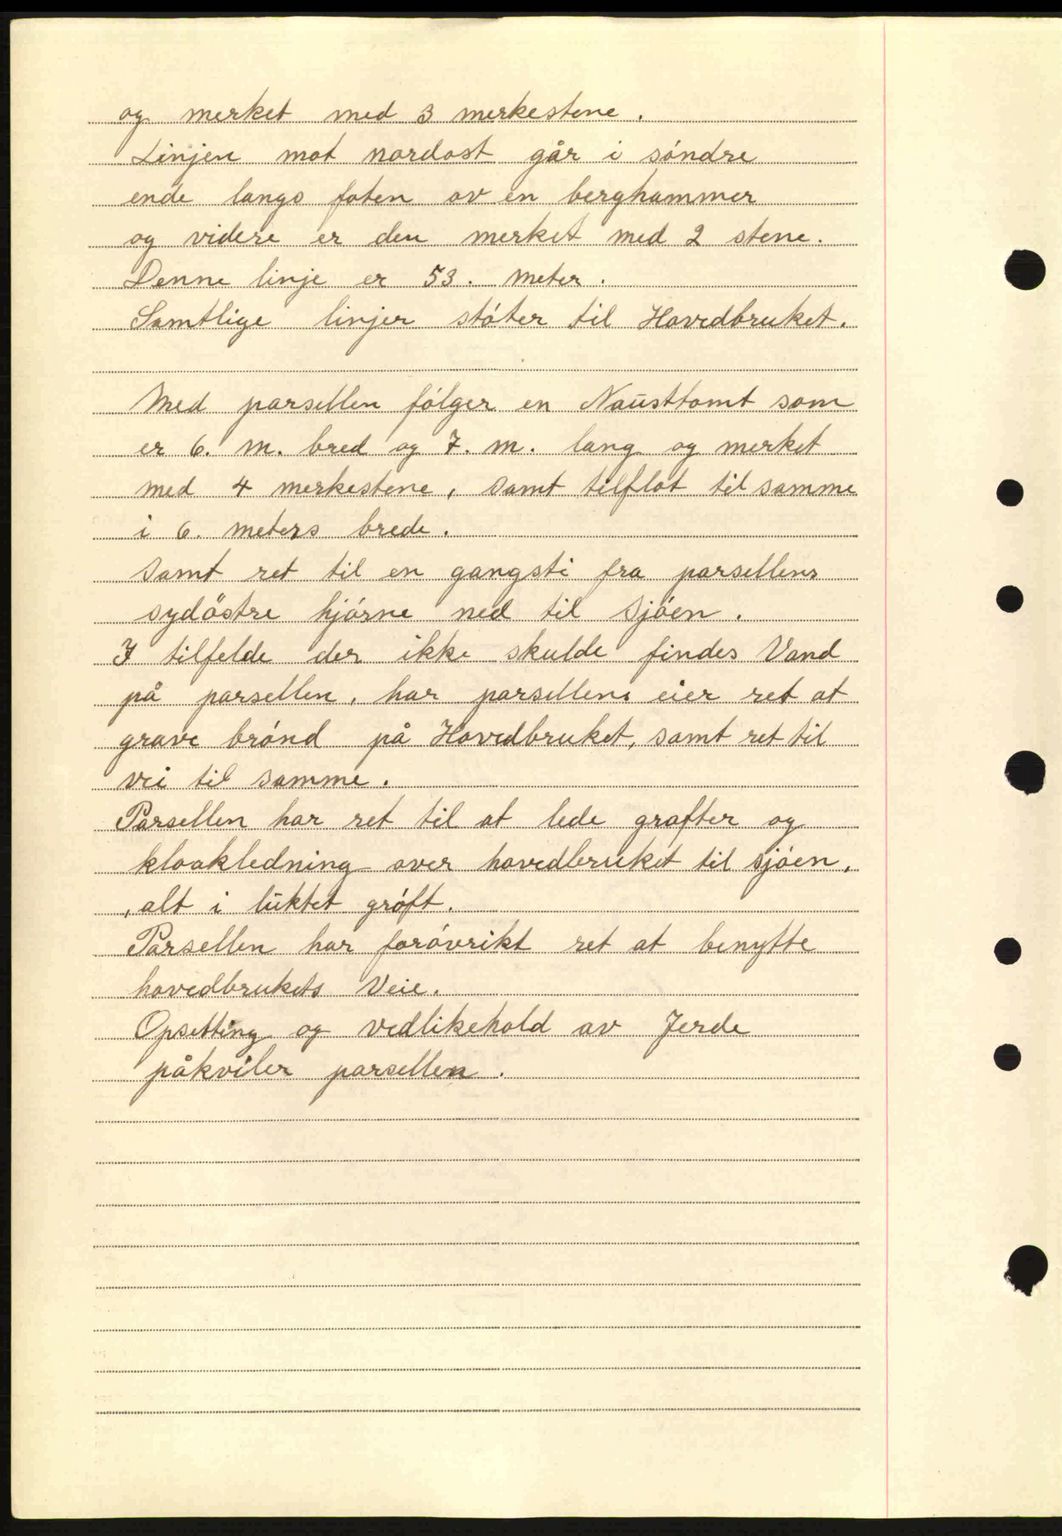 og merket med 3 merkestene.
Linjen mot nordost går i söndre
ende langs foten av en berghammer
og videre er den merket med 2 stene.
Denne linje er 53. meter.
Samtlige linjer støter til Hovedbruket.
Med parsellen følger en Nausttomt som
er 6. m. bred og 7. m. lang og merket
med 4 merkestene, samt tilflot til samme
i 6. meters brede.
Samt ret til en gangsti fra parsellens
sydöstre hjörne ned til Sjöen.
I tilfelde der ikke skulde findes Vand
på parsellen, har parsellens eier ret at
grave brönd på Hovedbruket, samt ret til
vei til samme.
Parsellen har ret til at lede grøfter og
kloakledning over hovedbruket til sjöen,
, alt i lukket gröft.
Parsellen har foróvrikt ret at benytte
hovedbrukets Veie.
Opsetting og vedlikehold av Jerde
påkviler parsellen.